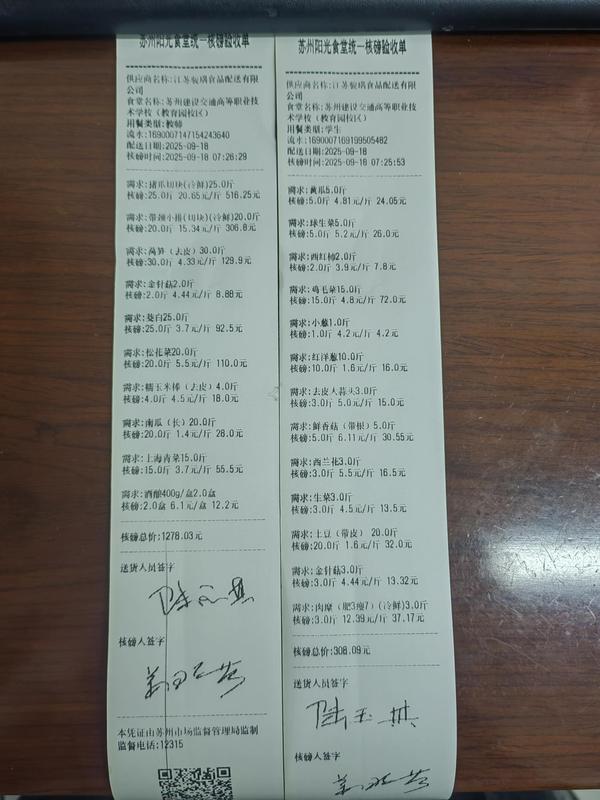 苏州阳光食堂统一核磅验收单
供应商名称:江苏骏瑀食品配送有限
公司
食堂名称:苏州建设交通高等职业技
术学校（教育园校区）
用餐类型:教师
流水:1690007147154243640
配送日期:2025-09-18
核磅时间:2025-09-18 07:26:29
需求:猪爪切块(冷鲜)25.0斤
核磅:25.0斤 20.65元/斤 516.25元
需求:带颈小排(切块)(冷鲜)20.0斤
核磅:20.0斤 15.34元/斤 306.8元
需求:莴笋（去皮）30.0斤
核磅:30.0斤 4.33元/斤 129.9元
需求:金针菇2.0斤
核磅:2.0斤 4.44元/斤 8.88元
需求:茭白25.0斤
核磅:25.0斤 3.7元/斤 92.5元
需求:松花菜20.0斤
核磅:20.0斤 5.5元/斤 110.0元
需求:糯玉米棒（去皮）4.0斤
核磅:4.0斤 4.5元/斤 18.0元
需求:南瓜（长）20.0斤
核磅:20.0斤 1.4元/斤 28.0元
需求:上海青菜15.0斤
核磅:15.0斤 3.7元/斤 55.5元
需求:酒酿400g/盒2.0盒
核磅:2.0盒 6.1元/盒 12.2元
核磅总价:1278.03元
送货人员签字
核磅人签字
本凭证由苏州市场监督管理局监制
监督电话:12315
苏州阳光食堂统一核磅验收单
供应商名称:江苏骏瑀食品配送有限
公司
食堂名称:苏州建设交通高等职业技
术学校（教育园校区）
用餐类型:学生
流水:1690007169199505482
配送日期:2025-09-18
核磅时间:2025-09-18 07:25:53
需求:黄瓜5.0斤
核磅:5.0斤 4.81元/斤 24.05元
需求:球生菜5.0斤
核磅:5.0斤 5.2元/斤 26.0元
需求:西红柿2.0斤
核磅:2.0斤 3.9元/斤 7.8元
需求:鸡毛菜15.0斤
核磅:15.0斤 4.8元/斤 72.0元
需求:小葱1.0斤
核磅:1.0斤 4.2元/斤 4.2元
需求:红洋葱10.0斤
核磅:10.0斤 1.6元/斤 16.0元
需求:去皮大蒜头3.0斤
核磅:3.0斤 5.0元/斤 15.0元
需求:鲜香菇（带根）5.0斤
核磅:5.0斤 6.11元/斤 30.55元
需求:西兰花3.0斤
核磅:3.0斤 5.5元/斤 16.5元
需求:生菜3.0斤
核磅:3.0斤 4.5元/斤 13.5元
需求:土豆（带皮） 20.0斤
核磅:20.0斤 1.6元/斤 32.0元
需求:金针菇3.0斤
核磅:3.0斤 4.44元/斤 13.32元
需求:肉糜（肥3瘦7）(冷鲜)3.0斤
核磅:3.0斤 12.39元/斤 37.17元
核磅总价:308.09元
送货人员签字
核磅人签字